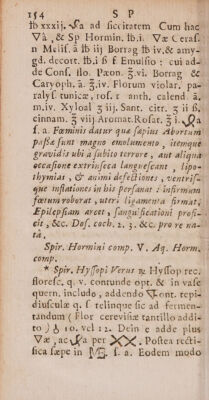 154 S P
lb xxxij. ad siccitatem Cum hac
& Sp Hormin. lb i. Væ Ceras.
n Melis. â lb iij Borag lb iv. & amyg.
decort. lb. i ß f Emulsio: cui ad-
de Cons. flo. Pæon. ʒ.vi. Borag &
Caryoph. â ʒ.iv. Florum violar. pa-
ralys tunicæ, ros. r anth. calend. â.
m. iv. Xyloal ʒ iij. Sant. citr. ʒ ii ß,
cinnam. ʒ viij. Aromat. Rosat. ʒ i.
s a. Fœminis datur quæ sæpius Abortum
passæ sunt magno emolumento, itemque
gravidis ubi à subito terrore, aut aliqua
occasione extrinseca languescant, lipo-
thymias, & animi defectiones, ventris-
que inflationes in his persanat: infirmum
fœtum roborat, uteri ligamenta firmat,
Epilepsiam arcet, sanguificationi profi-
cit, &c. Dos. coch. 2. 3. &c. pro re na-
tâ.
Spir. Hormini comp. V. Aq. Horm.
comp.
* Spir. Hyssopi Verus ♃ Hyssop rec.
floresc. q. v. contunde opt. & in vase
quern. includo, addendo font. tepi-
diusculæ q. s relinque sic ad fermen-
tandum (Flor cerevisiæ tantillo addi-
to) 10. vel 12. Dein e adde plus
, ac a per XX. Postea recti-
fica sæpe in s. a. Eodem modo